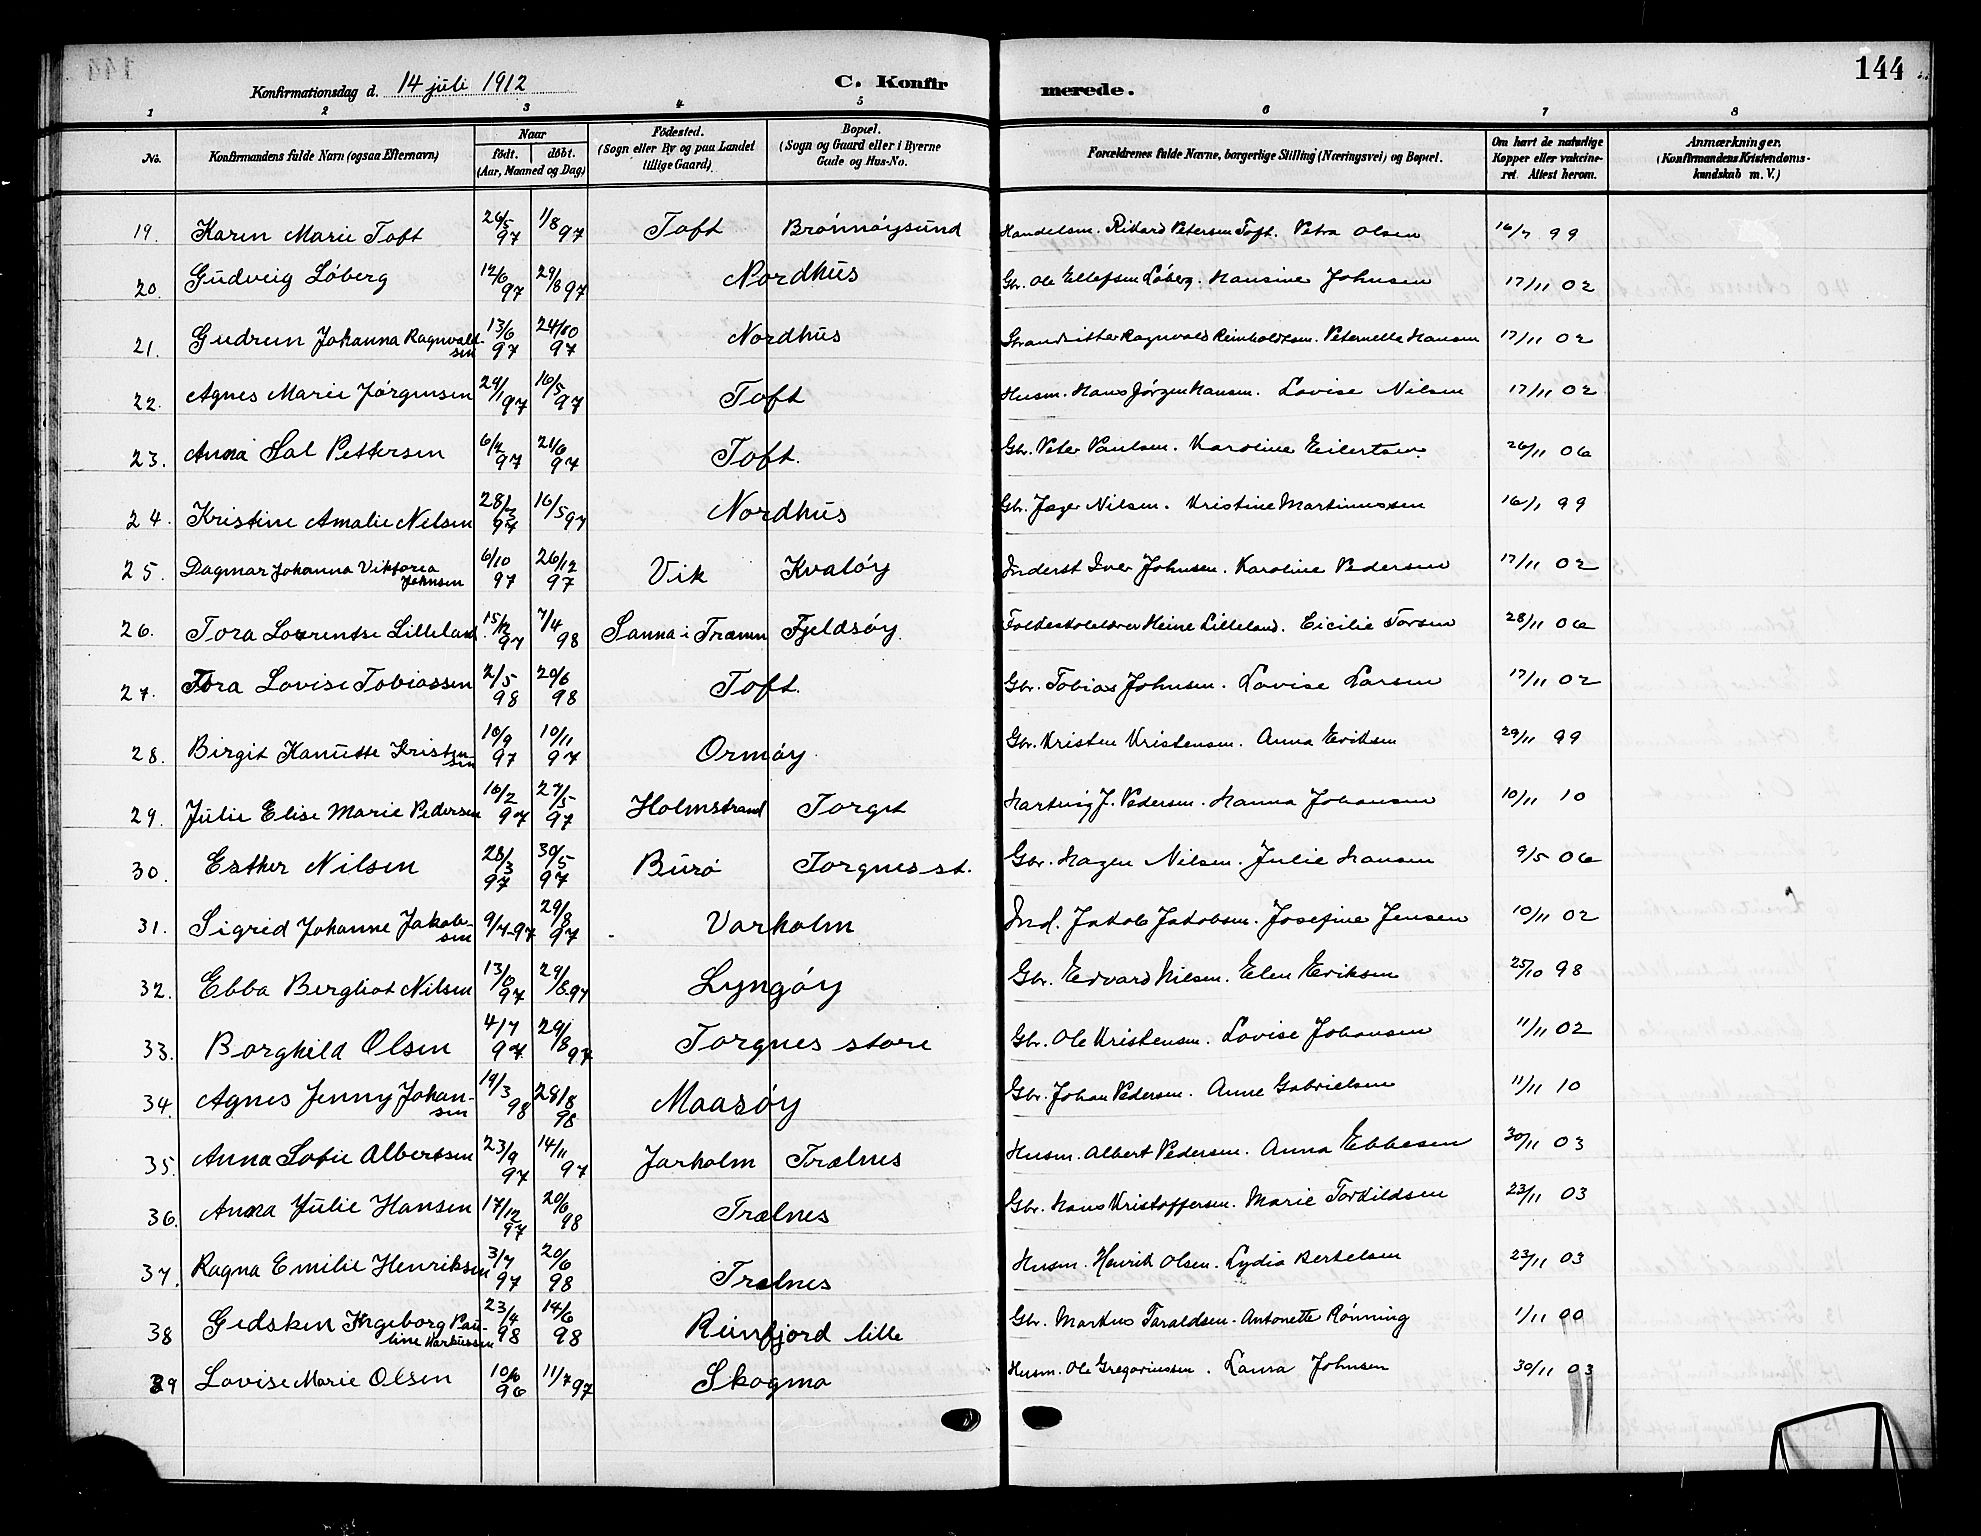 144
Konfirmationsdag d. 14 juli 1912
C. Konfirmerede.
1 2 3 4 5 6 7 8
No.
Konfirmandens fulde Navn (ogsaa Efternavn)
Naar
födt. döbt.
(Aar, Maaned og Dag)
Födested.
(Sogn eller By og paa Landet
tillige Gaard)
Bopæl.
(Sogn og Gaard eller i Byerne
Gade og Hus-No.
Forældrenes fulde Navne, borgerlige Stilling (Næringsvei) og Bopæl.
Om havt de naturlige
Kopper eller vakcine-
ret. Attest herom.
Anmærkninger.
(Konfirmandens Kristendoms-
kundskab m. V.)
19. Karen Marie Toft 26/5 97 1/8 97 Toft Brönnöysund Handelsm. Rikard Petersen Toft. Petra Olsen 16/7 99
20. Gudveig Löberg 12/6 97 29/8 97 Nordhus Gbr. Ole Ellefsen Löberg. Hansine Johnsen 17/11 02
21. Gudrun Johanna Ragnvald-
sen 13/6 97 24/10 97 Nordhus Strandsitter Ragnvald Reinholdtsen. Peternelle Hansen 17/11 02
22. Agnes Marie Jörgensen 29/1 97 16/5 97 Toft Husm. Hans Jörgen Hansen. Lovise Nilsen 17/11 02
23. Anna Sal Pettersen 6/2 97 21/6 97 Toft. Gbr. Peter Paulsen. Karoline Eilertsen. 26/11 06
24. Kristine Amalie Nilsen 28/3 97 16/5 97 Nordhus Gbr. Jager Nilsen. Kristine Martinussen 16/1 99
25. Dagmar Johanna Viktoria
Johnsen 6/10 97 26/12 97 Vik Kvalöy Inderst Iver Johnsen. Karoline Pedersen 17/11 02
26. Tora Laurentse Lilleland 15/12 97 7/4 98 Sanna i Trænen Fjeldsöy. Folkeskolelærer Heine Lilleland. Cicilie Torsen 28/11 06
27. Tora Lovise Tobiassen 2/5 98 20/6 98 Toft. Gbr. Tobias Johnsen. Lovise Larsen 17/11 02
28. Birgit Hanütte Kristen
sen 10/9 97 10/11 97 Ormöy Gbr. Kristen Kristensen. Anna Eriksen 29/11 99
29. Julie Elise Marie Pedersen 16/2 97 27/5 97 Holmstrand Torget Hartvig J. Pedersen. Hanna Johansen 10/11 10
30. Esther Nilsen 28/3 97 30/5 97 Burö Torgnes st. Gbr. Hagen Nilsen. Julie Hansen 9/5 06
31. Sigrid Johanne Jakob-
sen 9/7-97 29/8 97 Varholm Ind. Jakob Jakobsen. Josefine Jensen 10/11 02
32. Ebba Bergliot Nilsen 13/6 97 29/8 97 Lyngöy Gbr. Edvard Nilsen. Elen Eriksen 25/10 98
33. Borghild Olsen 4/7 97 29/8 97 Torgnes store Gbr. Ole Kristensen. Lovise Johansen 11/11 02
34. Agnes Jenny Johan-
sen 19/3 98 28/8 98 Maasöy Gbr. Johan Pedersen. Anne Gabrielsen 11/11 10
35. Anna Sofie Albertsen 23/9 97 14/11 97 Jarholm Trælnes Husm. Albert Pedersen. Anna Ebbesen 30/11 03
36. Anna Julie Hansen 17/12 97 20/6 98 Trælnes Gbr. Hans Kristoffersen. Marie Torkildsen 23/11 03
37. Ragna Emilie Henriksen 3/7 97 20/6 98 Trælnes Husm. Henrik Olsen. Lydia Bertelsen 23/11 03
38 Gidsken Ingeborg Pau-
line Markussen 23/4 98 14/6 98 Reinfjord lille Gbr. Markus Taraldsen. Antonette Rönning 1/11 00
39 Lovise Marie Olsen 10/6 96 11/7 97 Skogmo Husm. Ole Gregoriussen. Laura Johnsen 30/11 03